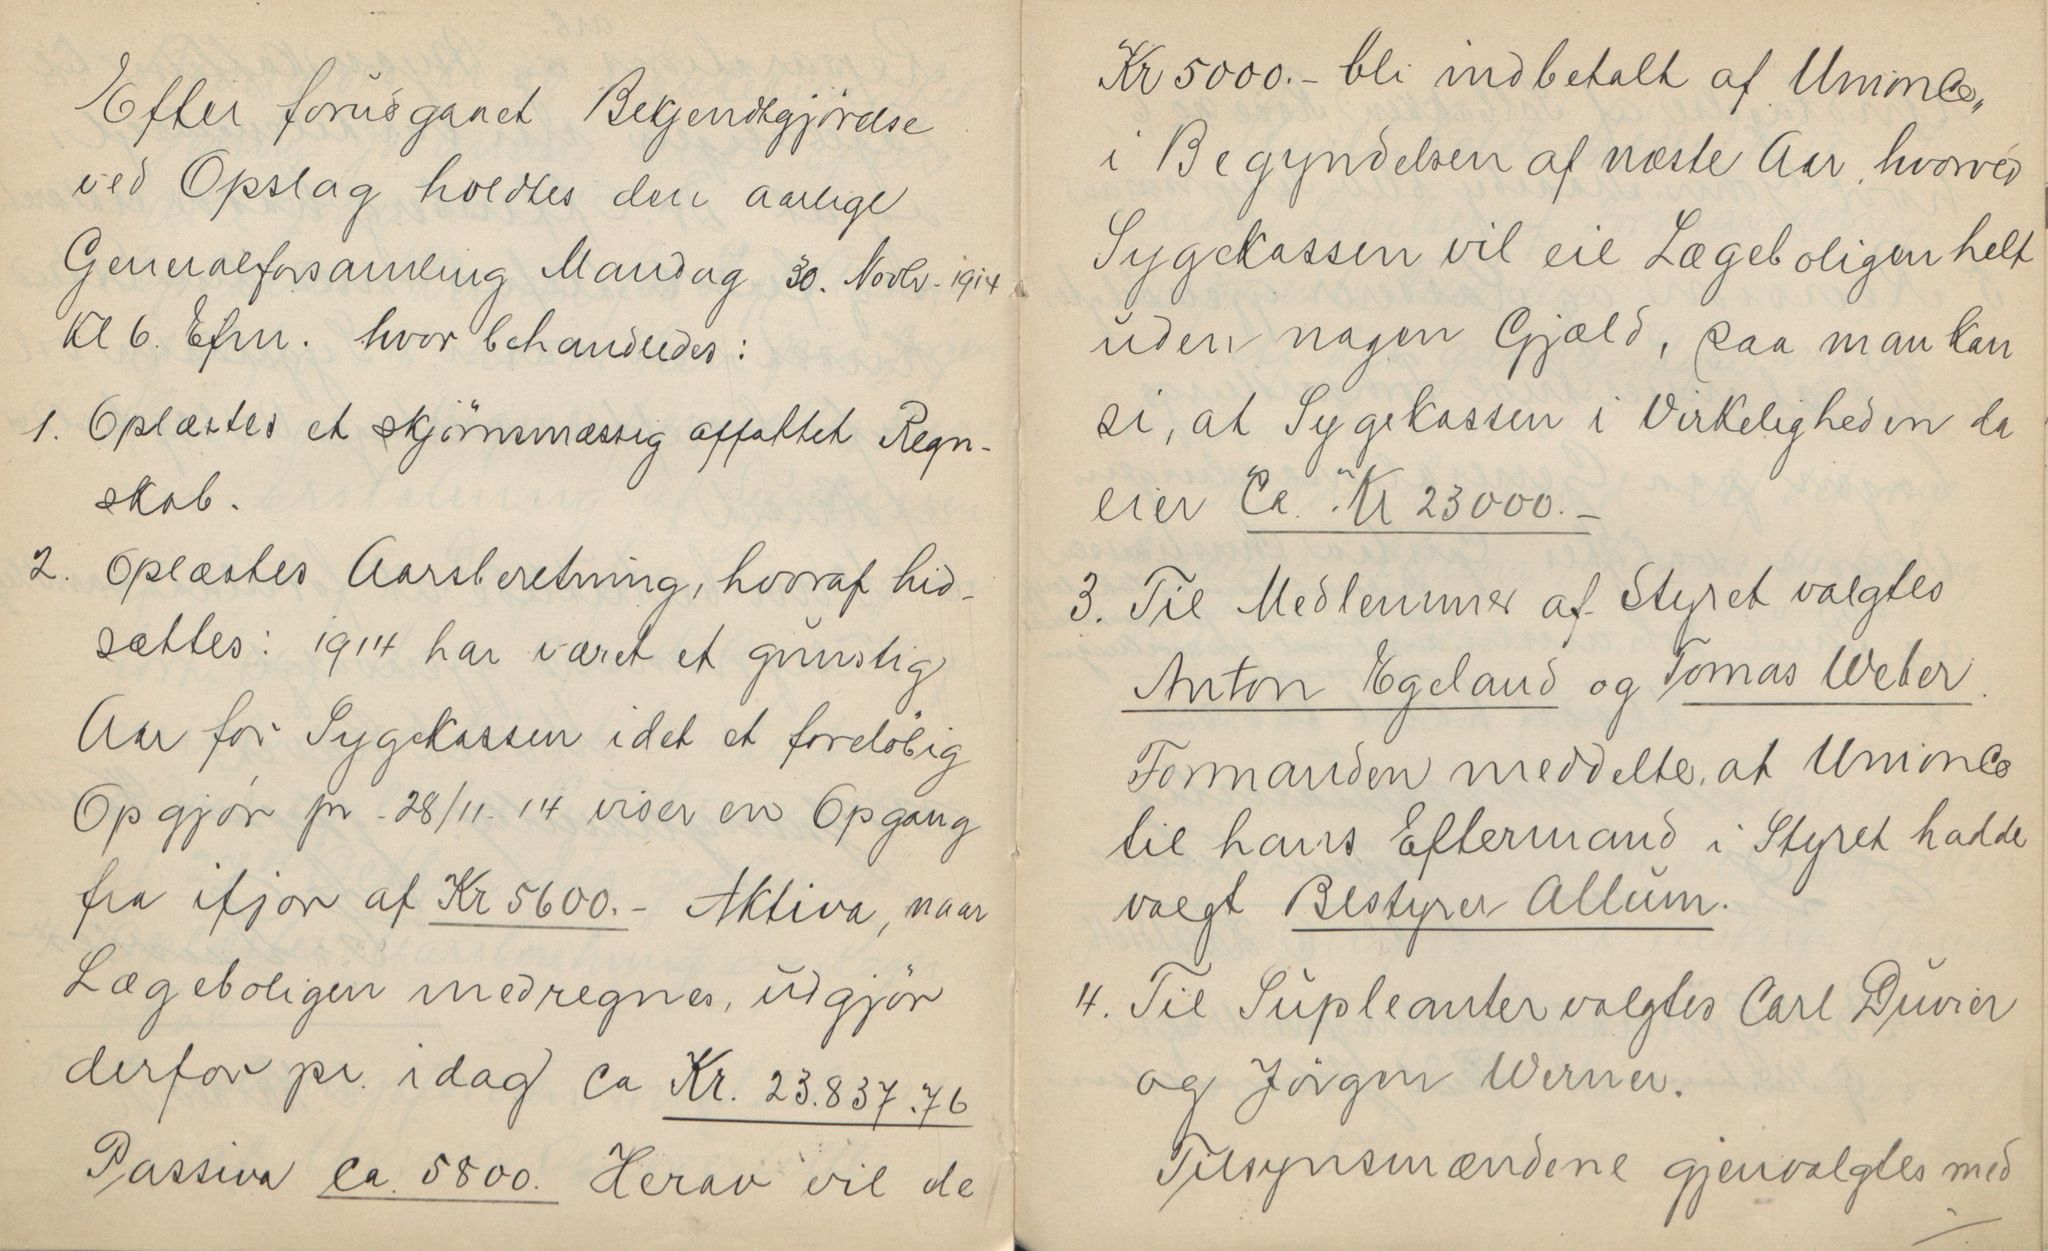 Efter forusgaaet Bekjendtgjörelse
ved Opslag holdtes den aarlige
Generalforsamling Mandag 30. Novbr. 1914
Kl 6. Efm. hvor behandledes:
1. Oplæstes et skjönsmæssig affattet Regn-
skab.
2. Oplæstes Aarsberetning, hvoraf hid-
sættes: 1914 har været et gunstig
Aar for Sygekassen idet et forelöbig
Opgjör pr. 28/11. 14 viser en Opgang
fra ifjor af Kr 5600.- Aktiva, naar
Lægeboligen medregnes, udgjör
derfor pr. idag ca Kr. 23.837.76
Passiva ca. 5800. Herav vil de
Kr 5000.- bli indbetalt af Union Co,
i Begyndelsen af næste Aar, hvorved
Sygekassen vil eie Lægeboligen helt
uden nogen Gjæld, saa man kan
si, at Sygekassen i Virkeligheden da
eier Ca. Kr 23000.-
3. Til Medlemmer af Styret valgtes
Anton Egeland og Tomas Weber.
Formanden meddelte, at Union Co
til hans Eftermand i Styret hadde
valgt Bestyrer Allum.
4. Til Supleanter valgtes Carl Duvier
og Jörgen Werner.
Tilsynsmændene gjenvalgtes med